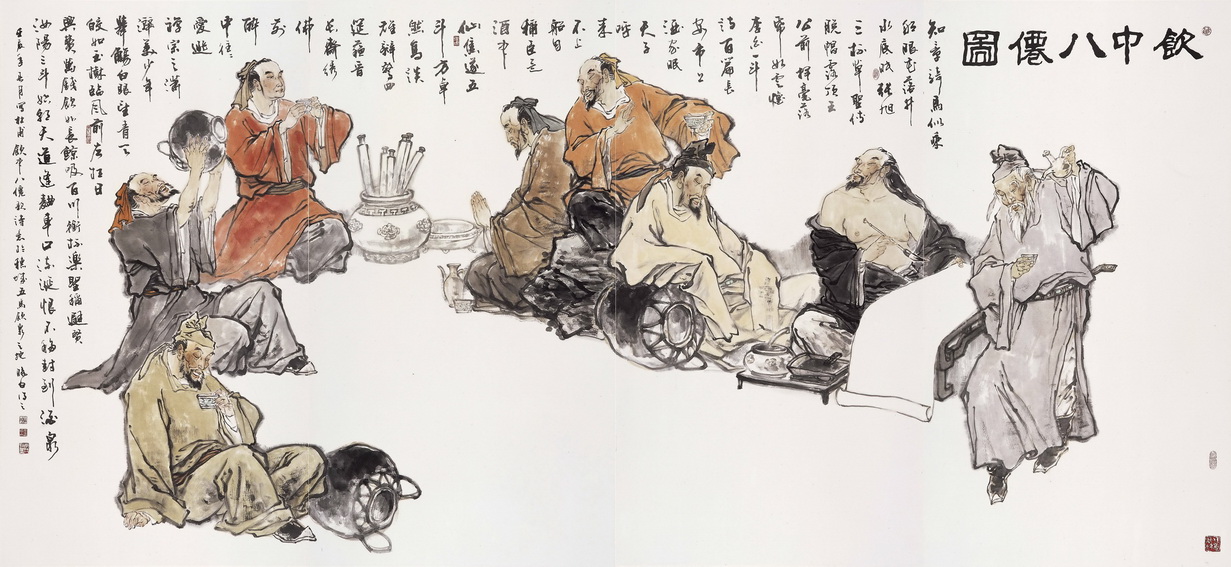 飲中八僊圖
知章騎馬似乘
船眼花落井
水底眠張旭
三杯草聖傳
脫帽露頂王
公前揮毫落
紙如雲煙
李白一斗
詩百篇長
安市上
酒家眠
天子
呼
來
不上
船自
稱臣是
酒中
仙焦遂五
斗方卓
然高談
雄辯驚四
筵蘇晉
長齋繡
佛
前
醉
中往往
愛逃
禪宗之瀟
灑美少年
舉觴白眼望青天
皎如玉樹臨風前左相日
興費萬錢飲如長鯨吸百川銜杯樂聖稱避賢
汝陽三斗始朝天道逢麴車口流涎恨不移封到酒泉
寫杜甫飲中八僊歌詩意於